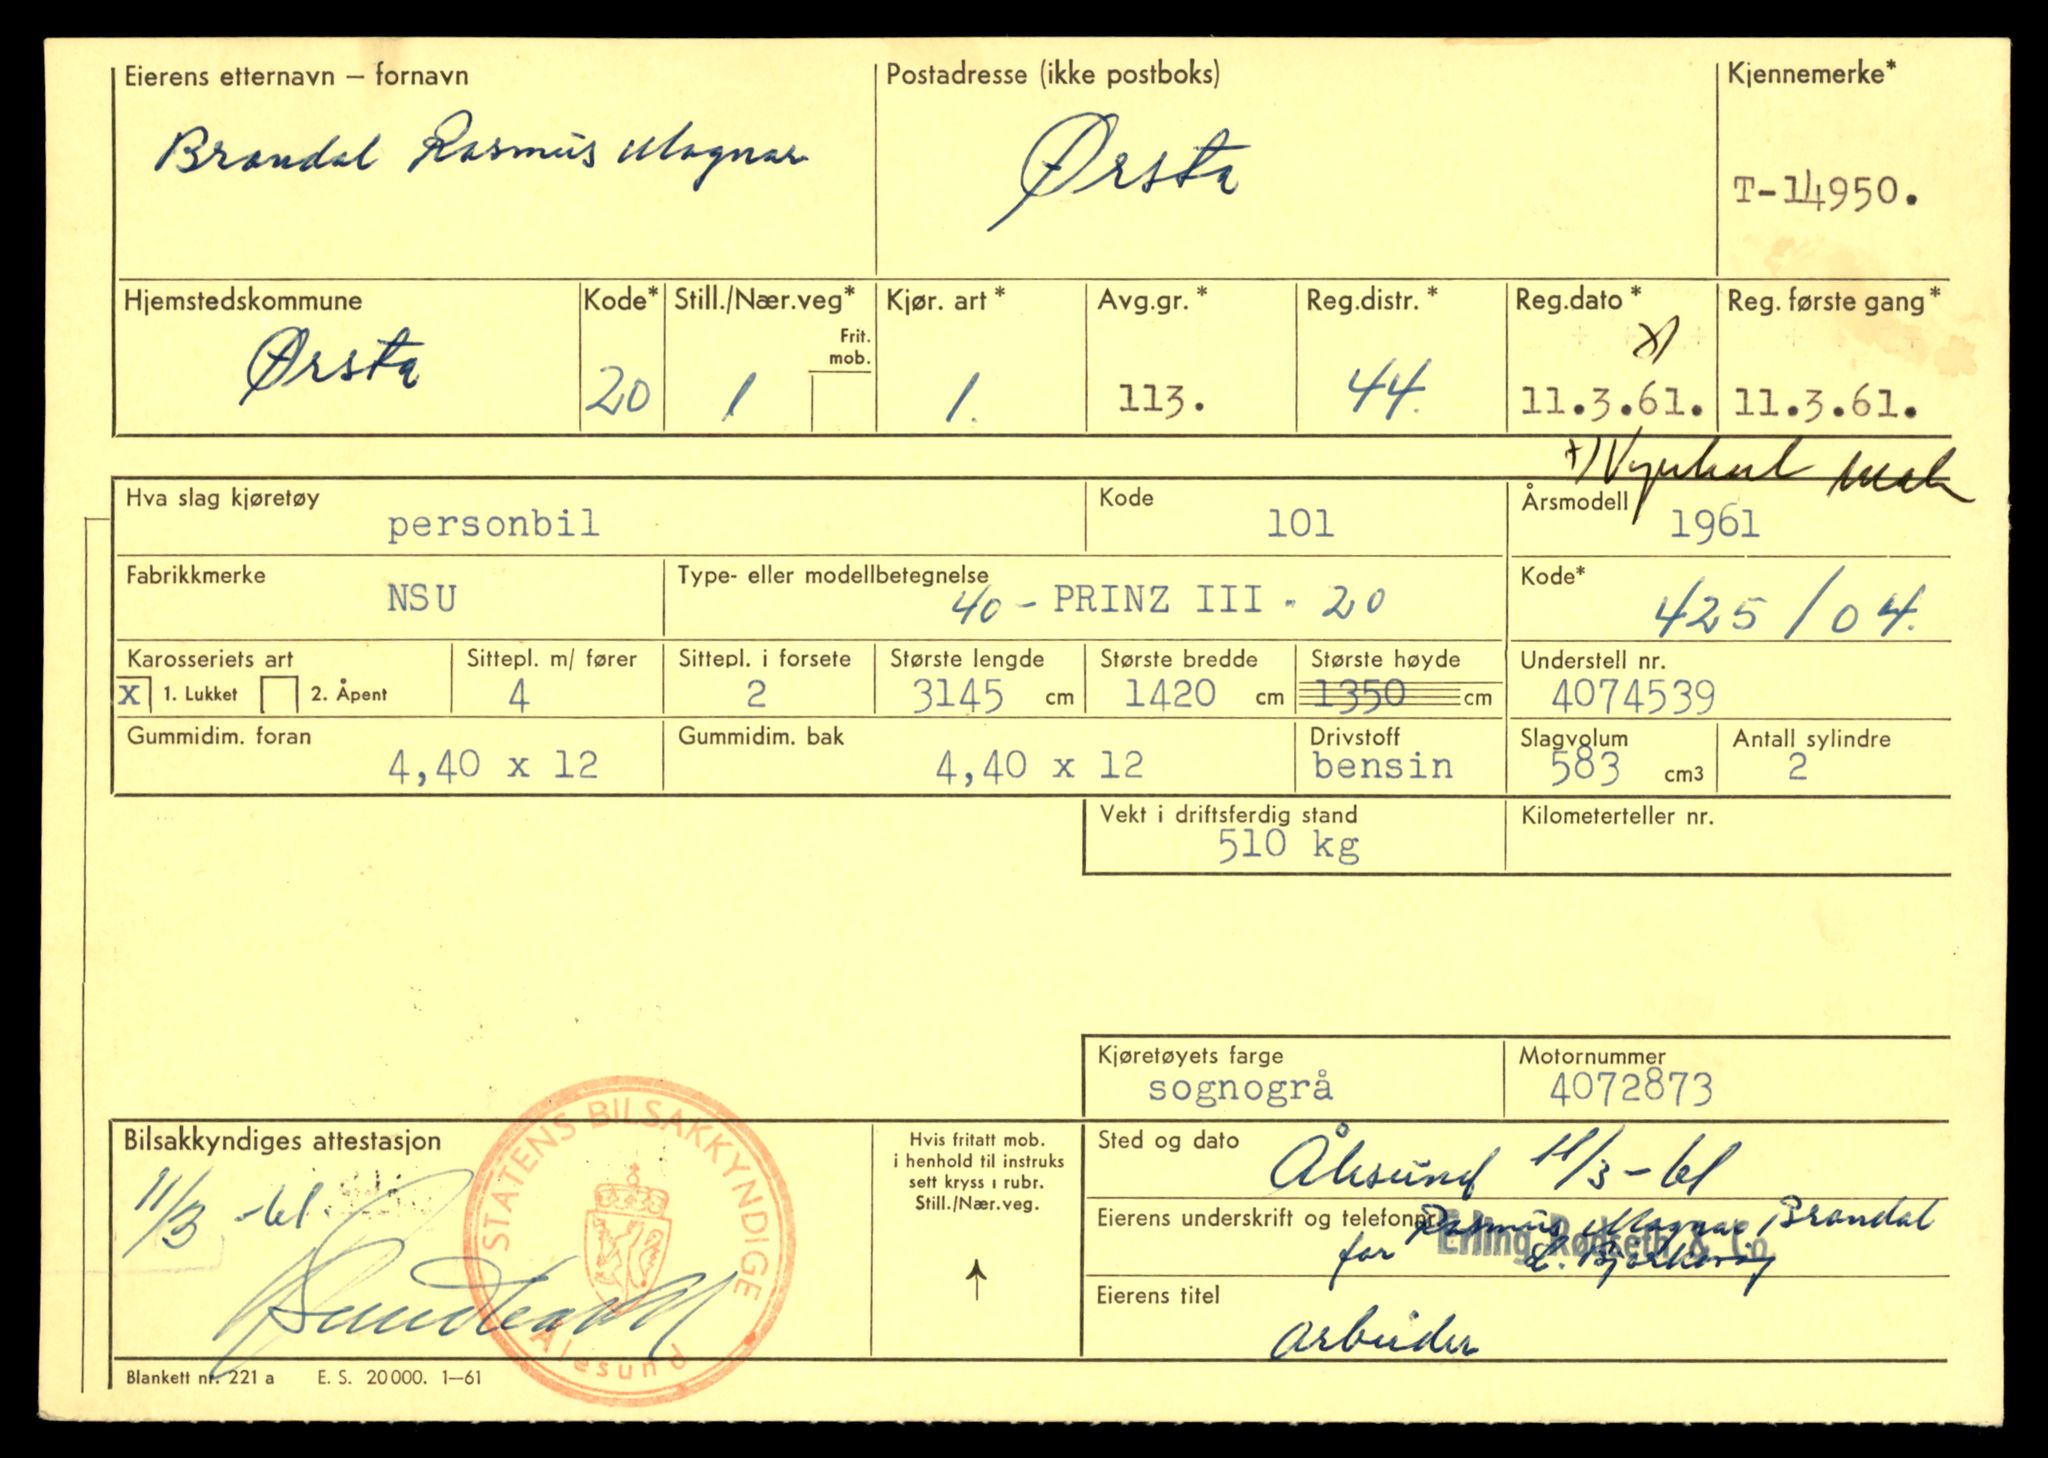 Eierens etternavn – fornavn
Brandal Rasmus Magnar
Postadresse (ikke postboks)
Ørsta
Kjennemerke*
T-14950.
Hjemstedskommune
Ørsta
Kode*
20
Still./Nær.veg*
Frit. mob.
1
Kjør. art *
1.
Avg.gr. *
113.
Reg.distr. *
44.
Reg.dato *
x)
11.3.61.
Reg. første gang*
11.3.61.
x)
Hva slag kjøretøy
personbil
Kode
101
Årsmodell
1961
Fabrikkmerke
NSU
Type- eller modellbetegnelse
40 - PRINZ III - 20
Kode*
425 / 04.
Karosseriets art
x 1. Lukket 2. Åpent
Sittepl. m/ fører
4
Sittepl. i forsete
2
Største lengde
3145 cm
Største bredde
1420 cm
Største høyde
1350 cm
Understell nr.
4074539
Gummidim. foran
4,40 x 12
Gummidim. bak
4,40 x 12
Drivstoff
bensin
Slagvolum
583 cm3
Antall sylindre
2
Vekt i driftsferdig stand
510 kg
Kilometerteller nr.
Kjøretøyets farge
sognogrå
Motornummer
4072873
Bilsakkyndiges attestasjon
11/3 -61.
STATENS BILSAKKYNDIGE
Ålesund
Hvis fritatt mob.
i henhold til instruks
sett kryss i rubr.
Still./Nær.veg.
Sted og dato
Ålesund 11/3-61
Eierens underskrift og telefonnr.
Rasmus Magnar Brandal
for Erling Rødseth & Co.
Eierens titel
arbeider
Blankett nr. 221 a E. S. 20 000. 1—61